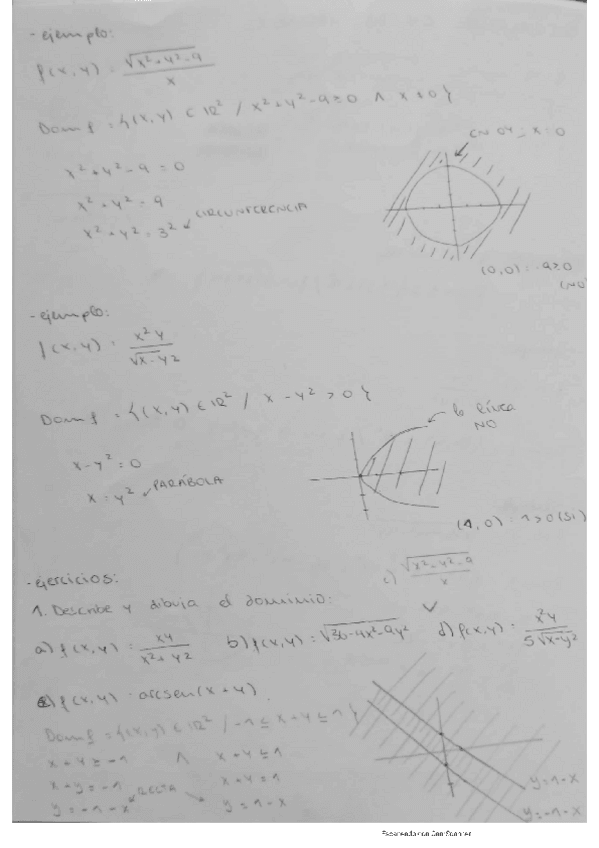 - ejemplo:
f(x,y) = √x²+y²-9 / x
Dom f = {(x,y) ∈ IR² / x²+y²-9≥0 ∧ x≠0}
EN OY, x=0
x²+y²-9 = 0
x²+y² = 9
x²+y² = 3² CIRCUNFERENCIA
(0,0) : -9≥0
(NO)
- ejemplo:
f(x,y) = x²y / √x-y²
Dom f = {(x,y) ∈ IR² / x-y² > 0}
la línea
NO
x-y² = 0
x = y² PARÁBOLA
(1,0) : 1>0 (SI)
- ejercicios:
c) √x²+y²-9 / x
1. Describe y dibuja el dominio:
a) f(x,y) = xy / x²+y² b) f(x,y) = √36-4x²-9y² d) f(x,y) = x²y / 5√x-y²
e) f(x,y) = arcsen(x+y)
Dom f = {(x,y) ∈ IR² / -1 ≤ x+y ≤ 1}
x+y ≥ -1 ∧ x+y ≤ 1
x+y = -1 x+y = 1
y = -1-x RECTA y = 1-x
y=1-x
y=-1-x
Escaneado con CamScanner